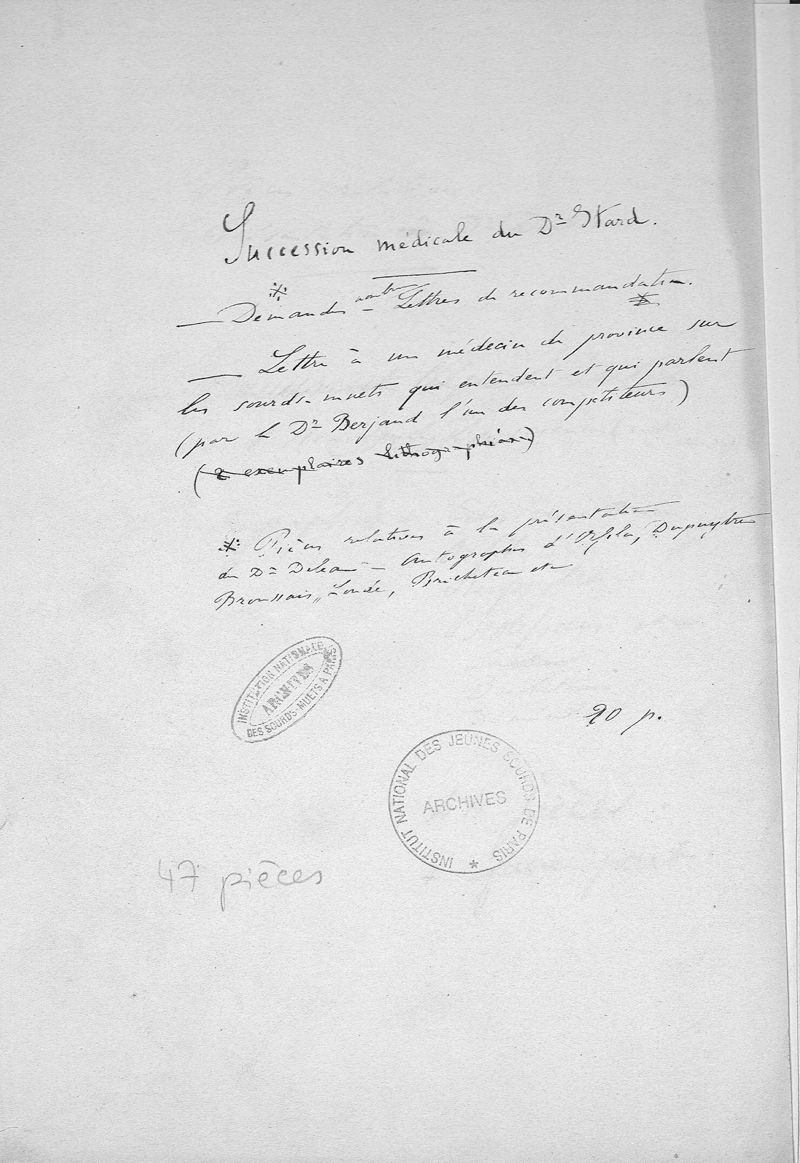 Succession médicale du Dr Itard.
— Demandes — Lettres de recommandation.
— Lettre à un médecin de province sur
les sourds-muets qui entendent et qui parlent
(par le Dr Berjaud l'un des compétiteurs)
(2 exemplaires lithographiés)
* Pièces relatives à la présentation
du Dr Deleau — Autographes d'Orfila, Dupuytren
Broussais, Londe, Bricheteau etc
INSTITUTION NATIONALE
ARCHIVES
DES SOURDS-MUETS A PARIS
90 p.
INSTITUT NATIONAL DES JEUNES SOURDS DE PARIS *
ARCHIVES
47 pièces